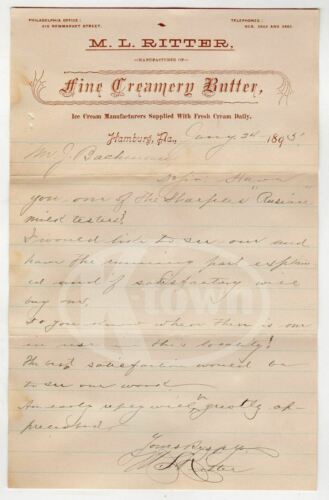 PHILADELPHIA OFFICE:
419 NEWMARKET STREET.
TELEPHONES:
M. L. RITTER,
MANUFACTURER OF
Fine Creamery Butter,
Ice Cream Manufacturers Supplied With Fresh Cream Daily.
Hamburg, Pa., 24 1895
Mr. J. Bachman
Have
you one of the Sharples "Rusian"
milk testers?
I would like to see one and
have the running part explain
ed and if satisfactory will
buy one.
Do you know where there is one
in use in this locality?
The best satisfaction would be
to see one work
An early reply will be greatly ap-
preciated
Yours Respy
M L Ritter
K-town